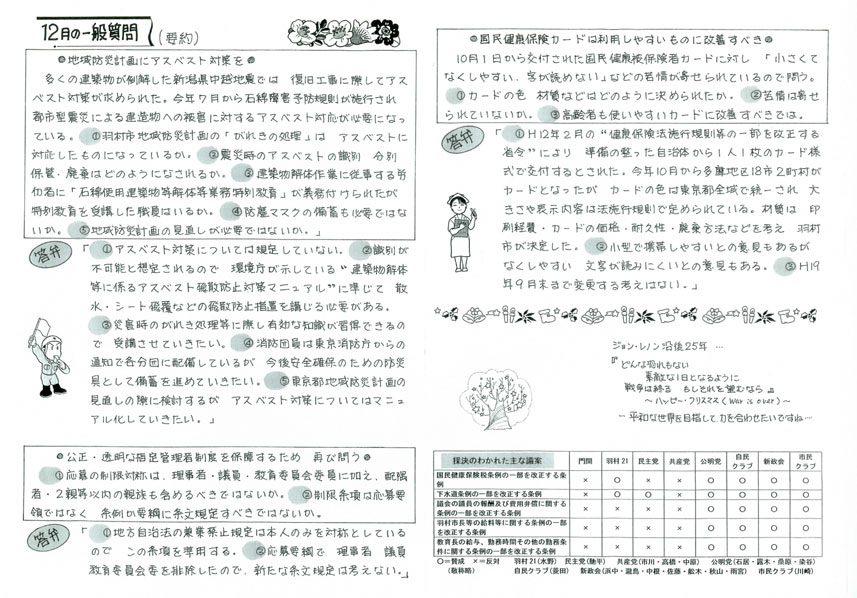 12月の一般質問 (要約)
●地域防災計画にアスベスト対策を●
多くの建築物が倒解した新潟県中越地震では 復旧工事に際してアス
ベスト対策が求められた。今年7月から石綿障害予防規則が施行され
都市型震災による建造物への被害に対するアスベスト対応が必要になっ
ている。①羽村市地域防災計画の「がれきの処理」は アスベストに
対応したものになっているか。②震災時のアスベストの識別 分別
保管・廃棄はどのようになされるか。③建築物解体作業に従事する労
働者に「石綿使用建築物等解体等業務特別教育」が義務付けられたが
特別教育を受講した職員はいるか。④防塵マスクの備蓄も必要ではな
いか。⑤地域防災計画の見直しが必要ではないか。」
答弁
「①アスベスト対策については規定していない。②識別が
不可能と想定されるので 環境庁が示している“建築物解体
等に係るアスベスト飛散防止対策マニュアル”に準じて 散
水・シート覆覆などの飛散防止措置を講じる必要がある。
③災害時のがれき処理等に際し有効な知識が習得できるの
で 受講させていきたい。④消防団員は東京消防庁からの
通知で各分団に配備しているが 今後安全確保のための防災
具として備蓄を進めていきたい。⑤東京都地域防災計画の
見直しの際に検討するが アスベスト対策についてはマニュ
アル化していきたい。」
●公正・透明な指定管理者制度を保障するため 再び問う●
①応募の制限対称は、理事者・議員・教育委員会委員に加え、配偶
者・2親等以内の親族も含めるべきではないか。②制限条項は応募要
領ではなく 条例か要綱に条文規定すべきではないか。
答弁
「①地方自治法の兼業禁止規定は本人のみを対称としている
ので この条項を準用する。②応募要綱で 理事者 議員
教育委員会委を排除したので、新たな条文規定は考えない。」
●国民健康保険カードは利用しやすいものに改善すべき●
10月1日から交付された国民健康被保険者カードに対し 「小さくて
なくしやすい、字が読めない」などの苦情が寄せられているので問う。
①カードの色 材質などはどのように決められたか。②苦情は寄せ
られていないか。③高齢者も使いやすいカードに改善すべきでは。
答弁
「①H12年2月の“健康保険法施行規則等の一部を改正する
省令”により 準備の整った自治体から1人1枚のカード様
式で交付するとされた。今年10月から多摩地区18市2町村が
カードとなったが カードの色は東京都全域で統一され 大
きさや表示内容は法施行規則で定められている。材質は 印
刷経費・カードの価格・耐久性・廃棄方法などを考え 羽村
市が決定した。②小型で携帯しやすいとの意見もあるが
なくしやすい 文字が読みにくいとの意見もある。③H19
年9月末まで変更する考えはない。」
ジョン・レノン没後25年…
『どんな恐れもない
素敵な1日となるように
戦争は終る もしそれを望むなら』
～ハッピー・クリスマス(War is over)～
…平和な世界を目指して、力を合わせたいですね…
採決のわかれた主な議案 門間 羽村21 民主党 共産党 公明党 自民クラブ 新政会 市民クラブ
国民健康保険税条例の一部を改正する条例 × ○ × × ○ ○ ○ ○
下水道条例の一部を改正する条例 × ○ ○ × ○ ○ ○ ○
議会の議員の報酬及び費用弁償に関する条例の一部を改正する条例 × × × × ○ ○ ○ ○
羽村市長等の給料等に関する条例の一部を改正する条例 × × × × ○ ○ ○ ○
教育長の給与、勤務時間その他の勤務条件に関する条例の一部を改正する条例 × × × × ○ ○ ○ ○
○=賛成 ×=反対 羽村21(水野) 民主党(馳平) 共産党(市川・高橋・中原) 公明党(石居・露木・桑原・染谷)
(敬称略) 自民クラブ(並田) 新政会(浜中・瀧島・中根・佐藤・舩木・秋山・雨宮) 市民クラブ(川崎)